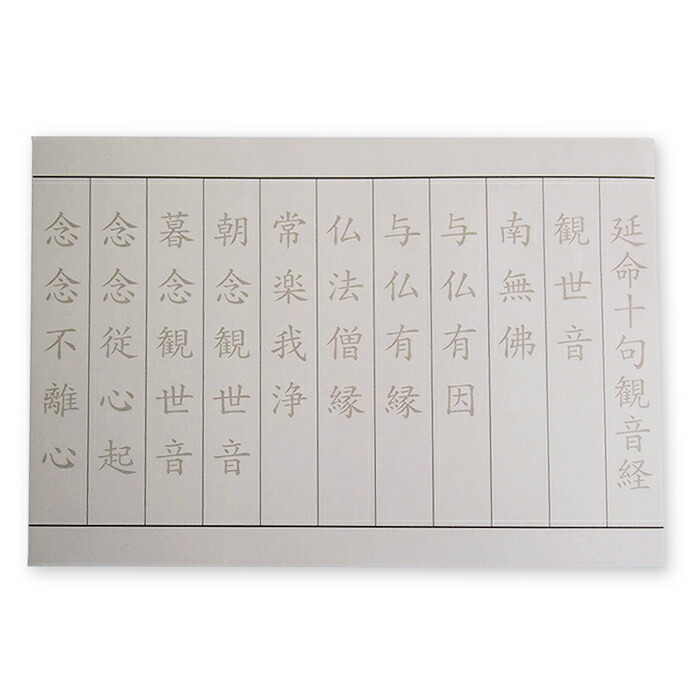 延命十句観音経
観世音
南無佛
与仏有因
与仏有縁
仏法僧縁
常楽我浄
朝念観世音
暮念観世音
念念従心起
念念不離心